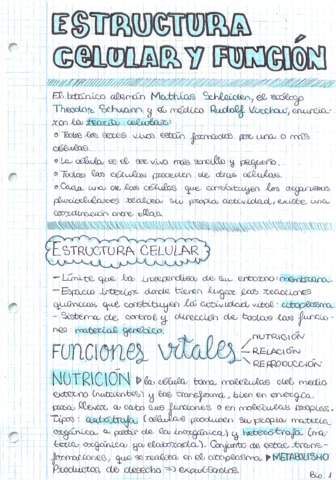 ESTRUCTURA
CELULAR Y FUNCIÓN
El botánico alemán Matthias Schleiden, el zoólogo
Theodor Schwann y el médico Rudolf Virchow, enuncia-
ron la teoría celular:
Todos los seres vivos están formados por una o más
células.
La célula es el ser vivo más sencillo y pequeño.
Todas las células proceden de otras células.
Cada una de las células que constituyen los organismos
pluricelulares realiza su propia actividad, existe una
coordinación entre ellas.
ESTRUCTURA CELULAR
- Límite que la independiza de su entorno: membrana
- Espacio interior donde tienen lugar las reacciones
químicas que constituyen la actividad vital: citoplasma
- Sistema de control y dirección de todas las funcio-
nes: material genético.
FUNCIONES vitales
- NUTRICIÓN
- RELACIÓN
- REPRODUCCIÓN
NUTRICIÓN ▷ la célula toma moléculas del medio
externo (nutrientes) y las transforma, bien en energía
para llevar a cabo sus funciones o en moléculas propias.
Tipos: autótrofa (células producen su propia materia
orgánica a partir de la inorgánica) y heterótrofa (ma-
teria orgánica ya elaborada). Conjunto de estas trans-
formaciones, que se realiza en el citoplasma ▷ METABOLISMO
Productos de desecho => expulsados.
Bio. 1